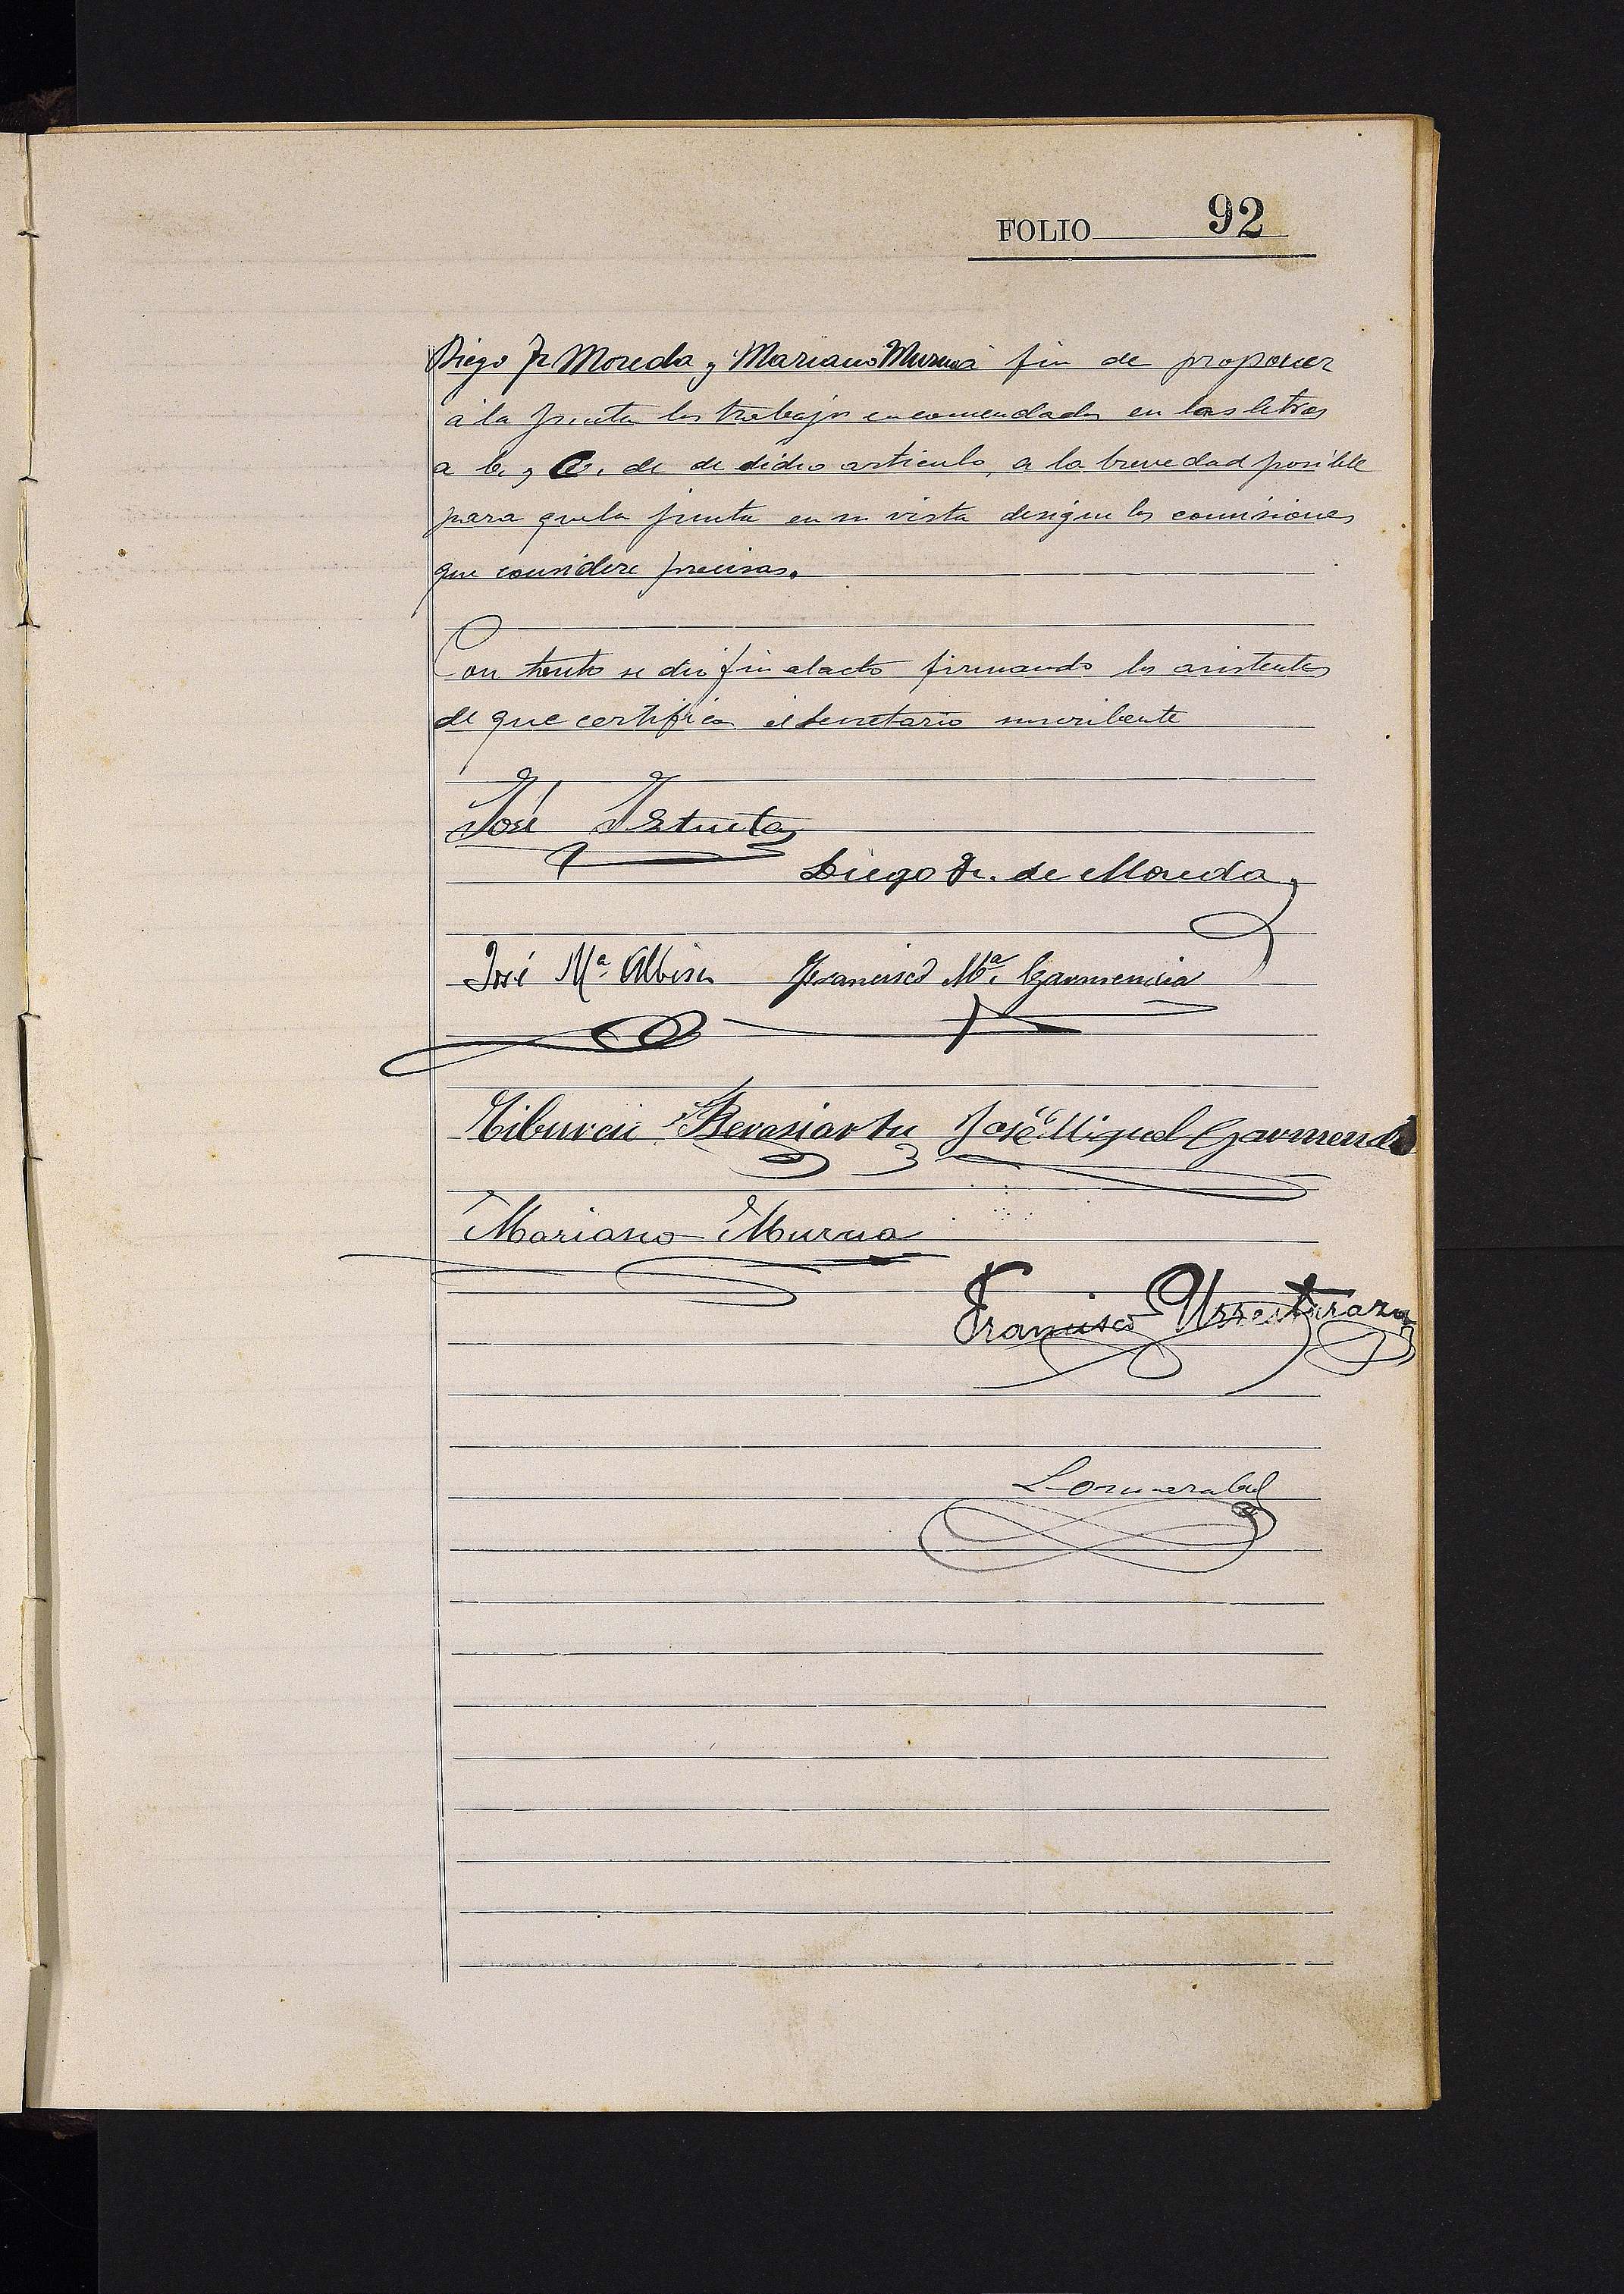 FOLIO 92
Diego Fz Moreda y Mariano Murua á fin de proponer
á la Junta los trabajos encomendados en las letras
a b. y C. de de dicho articulo, a la brevedad posible
para que la junta en su vista designe las comisiones
que considere precisas.
Con tanto se dio fin al acto firmando los asistentes
de que certifica el Secretario suscribente
José Iztueta
Diego Fz. de Moreda
José Mª Albisu Francisco Mª. Garmendia
Tiburcio Beresiartu José Miguel Garmendia
Mariano Murua
Francisco Urrestarazu